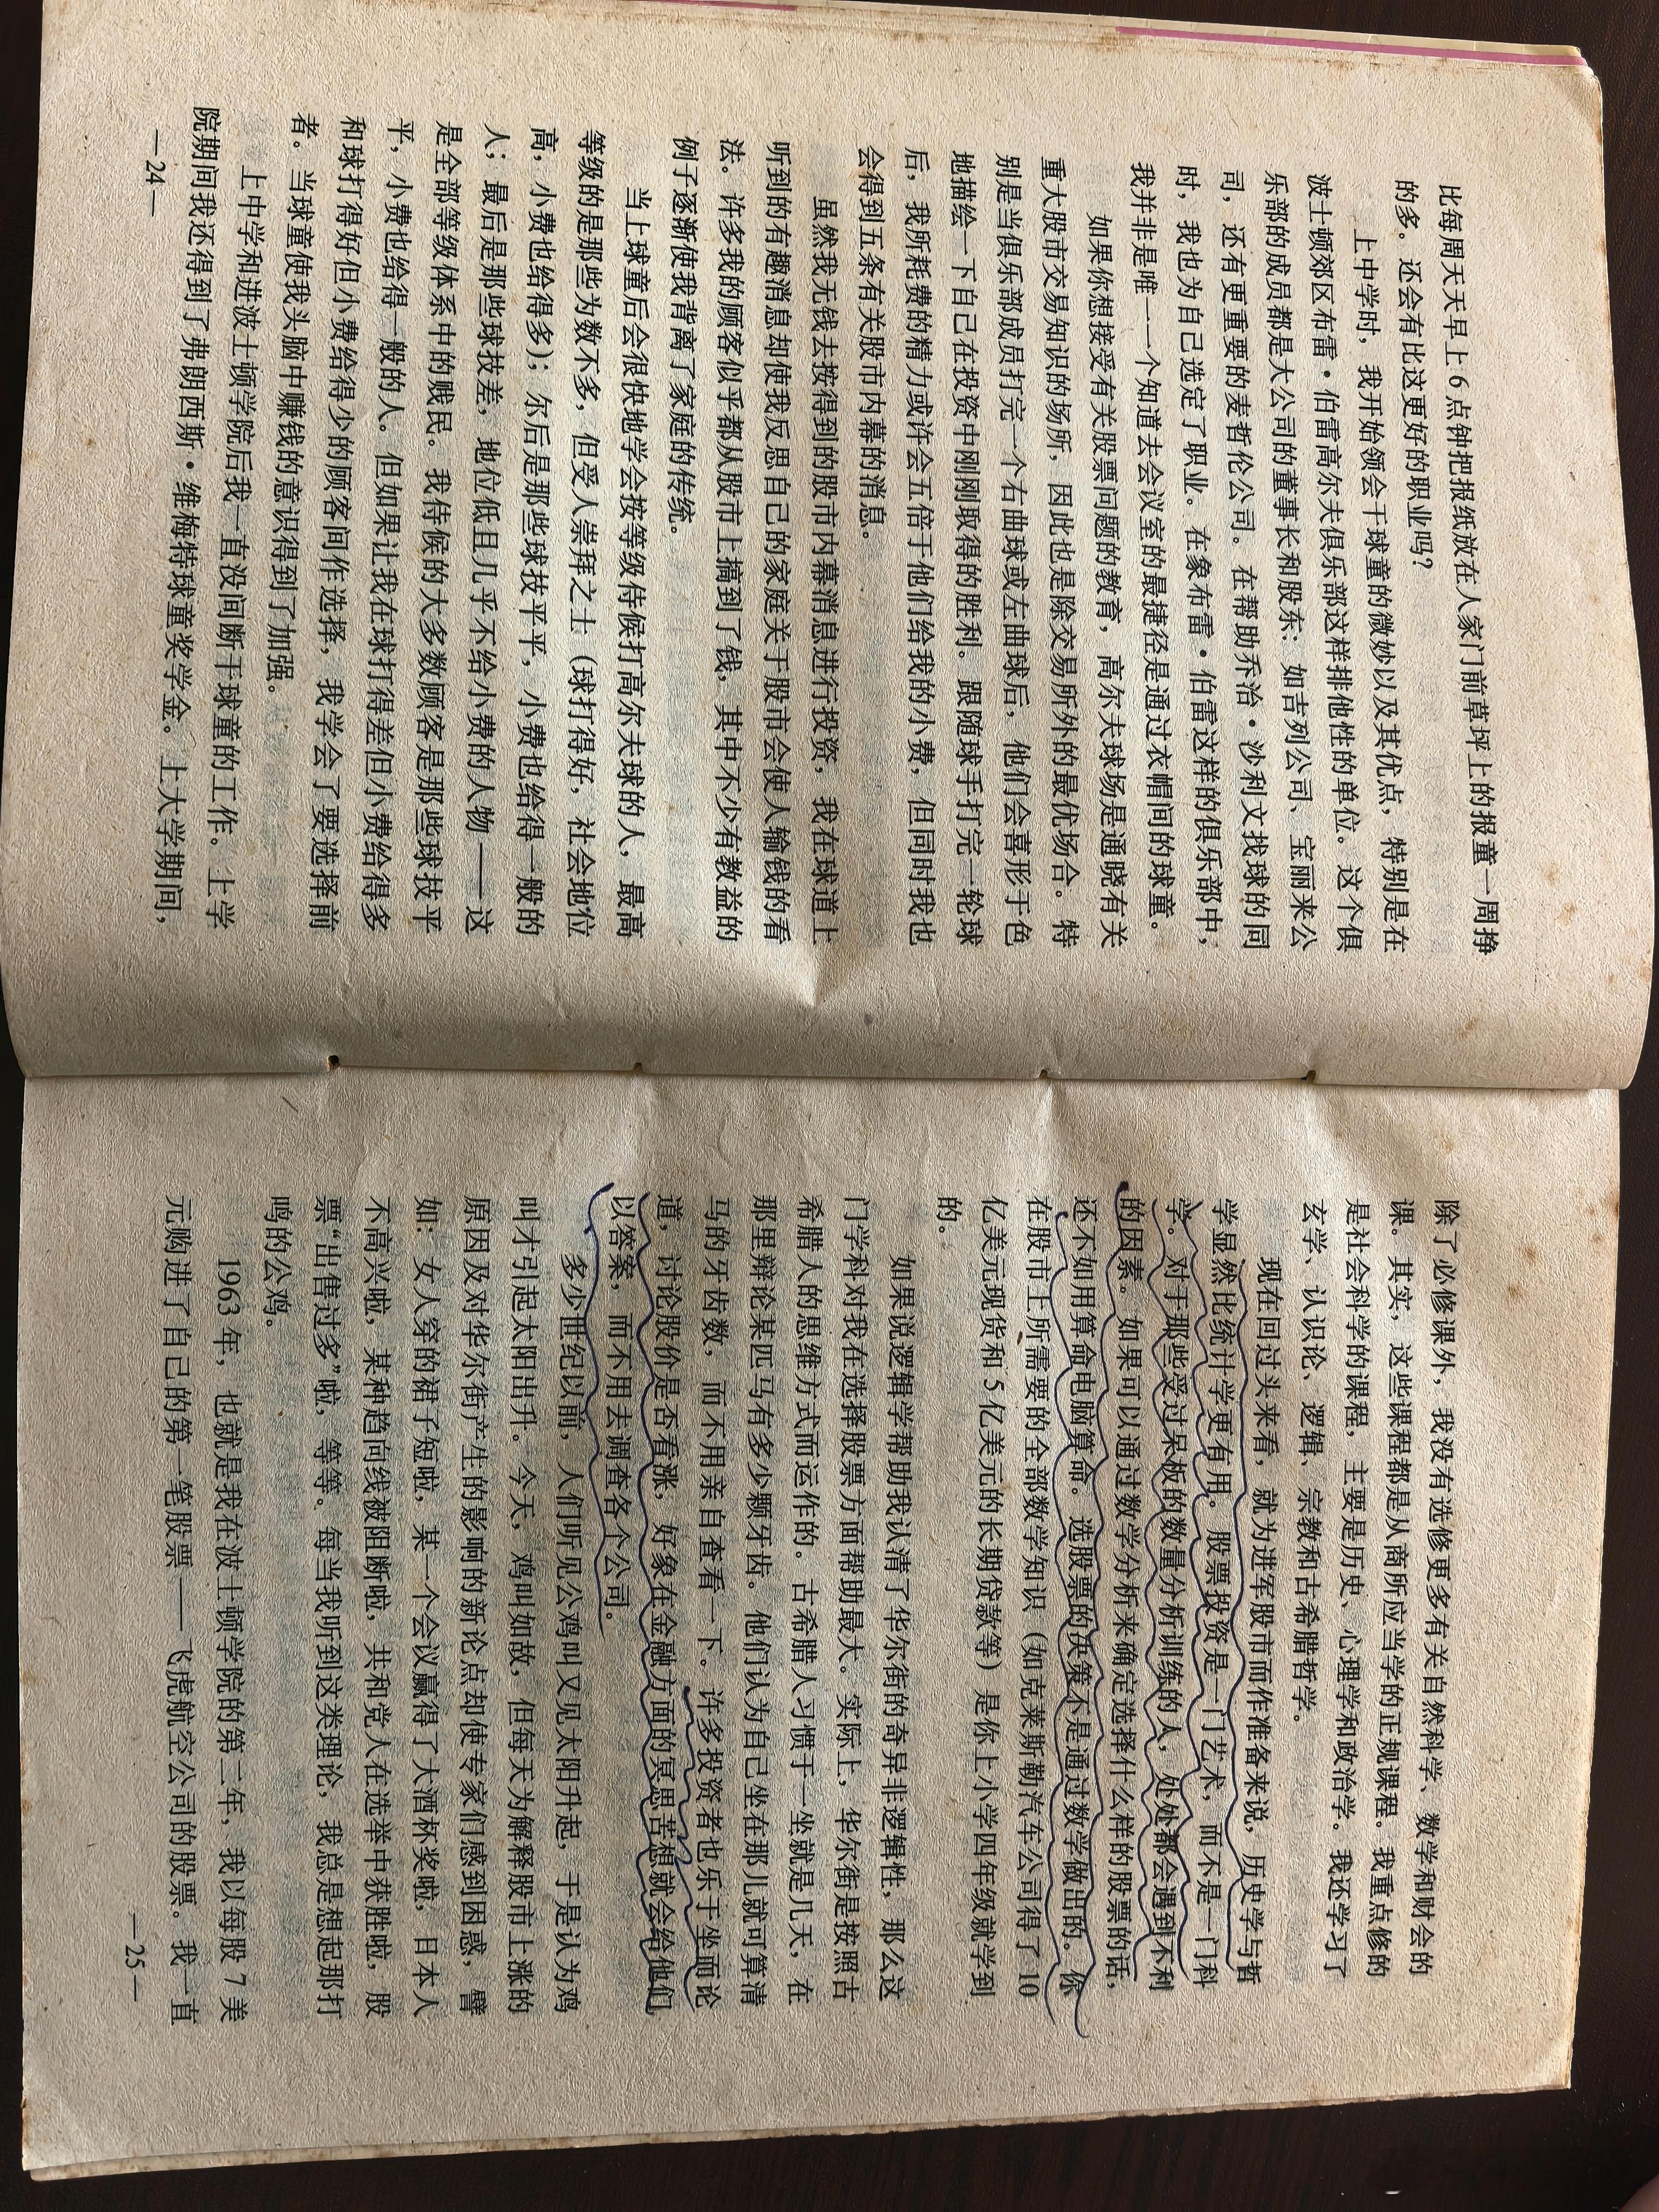 比每周天天早上6点钟把报纸放在人家门前草坪上的报童一周挣
的多。还会有比这更好的职业吗？
上中学时，我开始领会干球童的微妙以及其优点，特别是在
波士顿郊区布雷·伯雷高尔夫俱乐部这样排他性的单位。这个俱
乐部的成员都是大公司的董事长和股东：如吉列公司、宝丽来公
司，还有更重要的麦哲伦公司。在帮助乔治·沙利文找球的同
时，我也为自己选定了职业。在象布雷·伯雷这样的俱乐部中，
我并非是唯一一个知道去会议室的最捷径是通过衣帽间的球童。
如果你想接受有关股票问题的教育，高尔夫球场是通晓有关
重大股市交易知识的场所，因此也是除交易所外的最优场合。特
别是当俱乐部成员打完一个右曲球或左曲球后，他们会喜形于色
地描绘一下自己在投资中刚刚取得的胜利。跟随球手打完一轮球
后，我所耗费的精力或许会五倍于他们给我的小费，但同时我也
会得到五条有关股市内幕的消息。
虽然我无钱去按得到的股市内幕消息进行投资，我在球道上
听到的有趣消息却使我反思自己的家庭关于股市会使人输钱的看
法。许多我的顾客似乎都从股市上搞到了钱，其中不少有教益的
例子逐渐使我背离了家庭的传统。
当上球童后会很快地学会按等级侍候打高尔夫球的人，最高
等级的是那些为数不多，但受人崇拜之士（球打得好，社会地位
高，小费也给得多）；尔后是那些球技平平，小费也给得一般的
人；最后是那些球技差，地位低且几乎不给小费的人物——这
是全部等级体系中的贱民。我侍候的大多数顾客是那些球技平
平，小费也给得一般的人。但如果让我在球打得差但小费给得多
和球打得好但小费给得少的顾客间作选择，我学会了要选择前
者。当球童使我头脑中赚钱的意识得到了加强。
上中学和进波士顿学院后我一直没间断干球童的工作。上学
院期间我还得到了弗朗西斯·维梅特球童奖学金。上大学期间，
—24—
除了必修课外，我没有选修更多有关自然科学、数学和财会的
课。其实，这些课程都是从商所应当学的正规课程。我重点修的
是社会科学的课程，主要是历史、心理学和政治学。我还学习了
玄学、认识论、逻辑、宗教和古希腊哲学。
现在回过头来看，就为进军股市而作准备来说，历史学与哲
学显然比统计学更有用。股票投资是一门艺术，而不是一门科
学。对于那些受过呆板的数量分析训练的人，处处都会遇到不利
的因素。如果可以通过数学分析来确定选择什么样的股票的话，
还不如用算命电脑算命。选股票的决策不是通过数学做出的。你
在股市上所需要的全部数学知识（如克莱斯勒汽车公司得了10
亿美元现货和5亿美元的长期贷款等）是你上小学四年级就学到
的。
如果说逻辑学帮助我认清了华尔街的奇异非逻辑性，那么这
门学科对我在选择股票方面帮助最大。实际上，华尔街是按照古
希腊人的思维方式而运作的。古希腊人习惯于一坐就是几天，在
那里辩论某匹马有多少颗牙齿。他们认为自己坐在那儿就可算清
马的牙齿数，而不用亲自查看一下。许多投资者也乐于坐而论
道，讨论股价是否看涨，好象在金融方面的冥思苦想就会给他们
以答案，而不用去调查各个公司。
多少世纪以前，人们听见公鸡叫又见太阳升起，于是认为鸡
叫才引起太阳出升。今天，鸡叫如故，但每天为解释股市上涨的
原因及对华尔街产生的影响的新论点却使专家们感到困惑，譬
如：女人穿的裙子短啦，某一个会议赢得了大酒杯奖啦，日本人
不高兴啦，某种趋向线被阻断啦，共和党人在选举中获胜啦，股
票“出售过多”啦，等等。每当我听到这类理论，我总是想起那打
鸣的公鸡。
1963年，也就是我在波士顿学院的第二年，我以每股7美
元购进了自己的第一笔股票——飞虎航空公司的股票。我一直
—25—